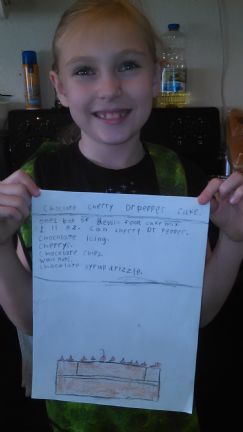 Choclate cherry Dr pepper cake.
one box of Devils food cake mix
1 11 oz. Can cherry Dr. Pepper.
Chocolate icing.
Cherrys.
Chocolate chips
Chocolate syrup drizzle.